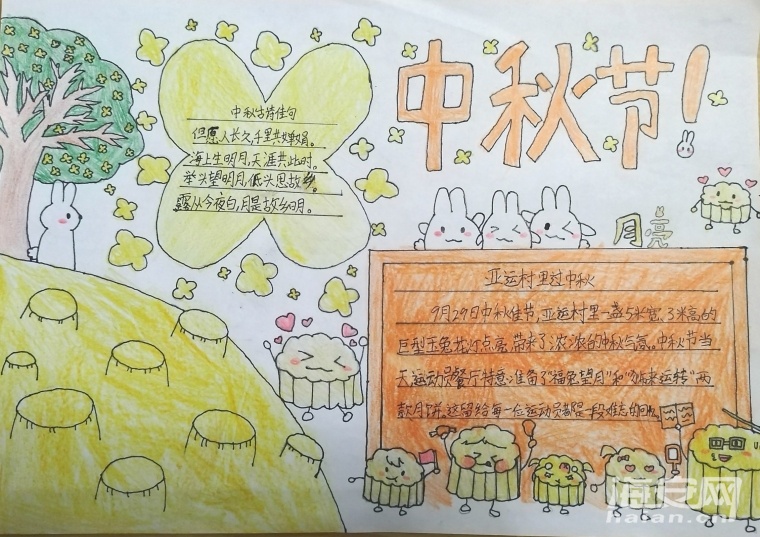 中秋节!
中秋古诗佳句
但愿人长久,千里共婵娟。
海上生明月,天涯共此时。
举头望明月,低头思故乡。
露从今夜白,月是故乡明。
月亮
亚运村里过中秋
9月29日中秋佳节,亚运村里一盏5米宽,3米高的
巨型玉兔龙灯点亮,带来了浓浓的中秋气氛。中秋节当
天,运动员餐厅特意准备了"福兔望月"和"来运转"两
款月饼。这留给每一位运动员都是一段难忘的回
海安网
haian.cn